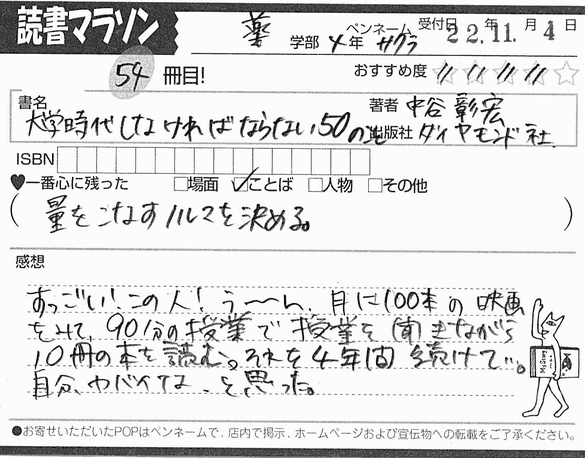 読書マラソン
薬 学部 4年 ペンネーム サクラ 受付日 22年11月4日
54 冊目! おすすめ度 ☆☆☆☆☆
書名 大学時代しなければならない50のこと
著者 中谷彰宏
出版社 ダイヤモンド社
ISBN
♥一番心に残った □場面 ☑ことば □人物 □その他
(量をこなすノルマを決める。)
感想
すっごい!この人!う〜〜ん、月に100本の映画
をみて、90分の授業で授業を聞きながら
10冊の本を読む。それを4年間続けて…。
自分、ヤバイな、と思った。
●お寄せいただいたPOPはペンネームで、店内で掲示、ホームページおよび宣伝物への転載をご了承ください。